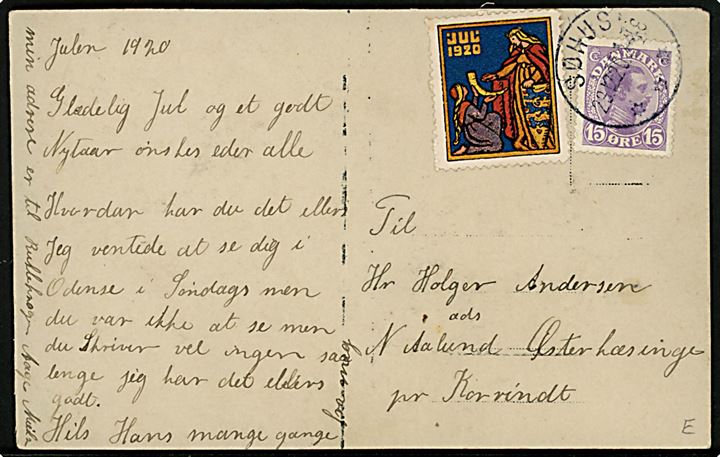 Julen 1920
Glædelig Jul og et godt
Nytaar ønskes eder alle
Hvordan har du det ellers
Jeg ventede at se dig i
Odense i Søndags men
du var ikke at se men
du Skriver vel ingen saa
lenge jeg har det ellers
godt.
Hils Hans mange gange
min adresse er til Aage
JUL
1920
SØHUS
DANMARK
15 ØRE 15
Til
Hr Holger Andersen
ads
N Aalund Østerhæsinge
pr Korrindt
E